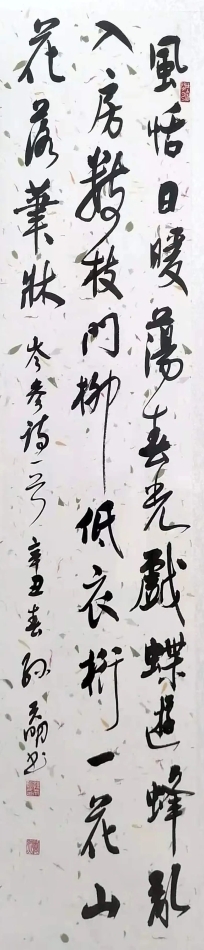 風恬日暖蕩春光戲蝶遊蜂亂
入房數枝門柳低衣桁一花山
花落筆牀 岑參詩一首 辛丑春 孙 明书